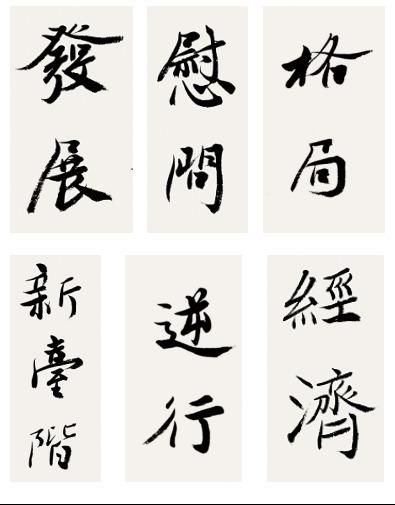 發展
慰問
格局
新臺階
逆行
經濟